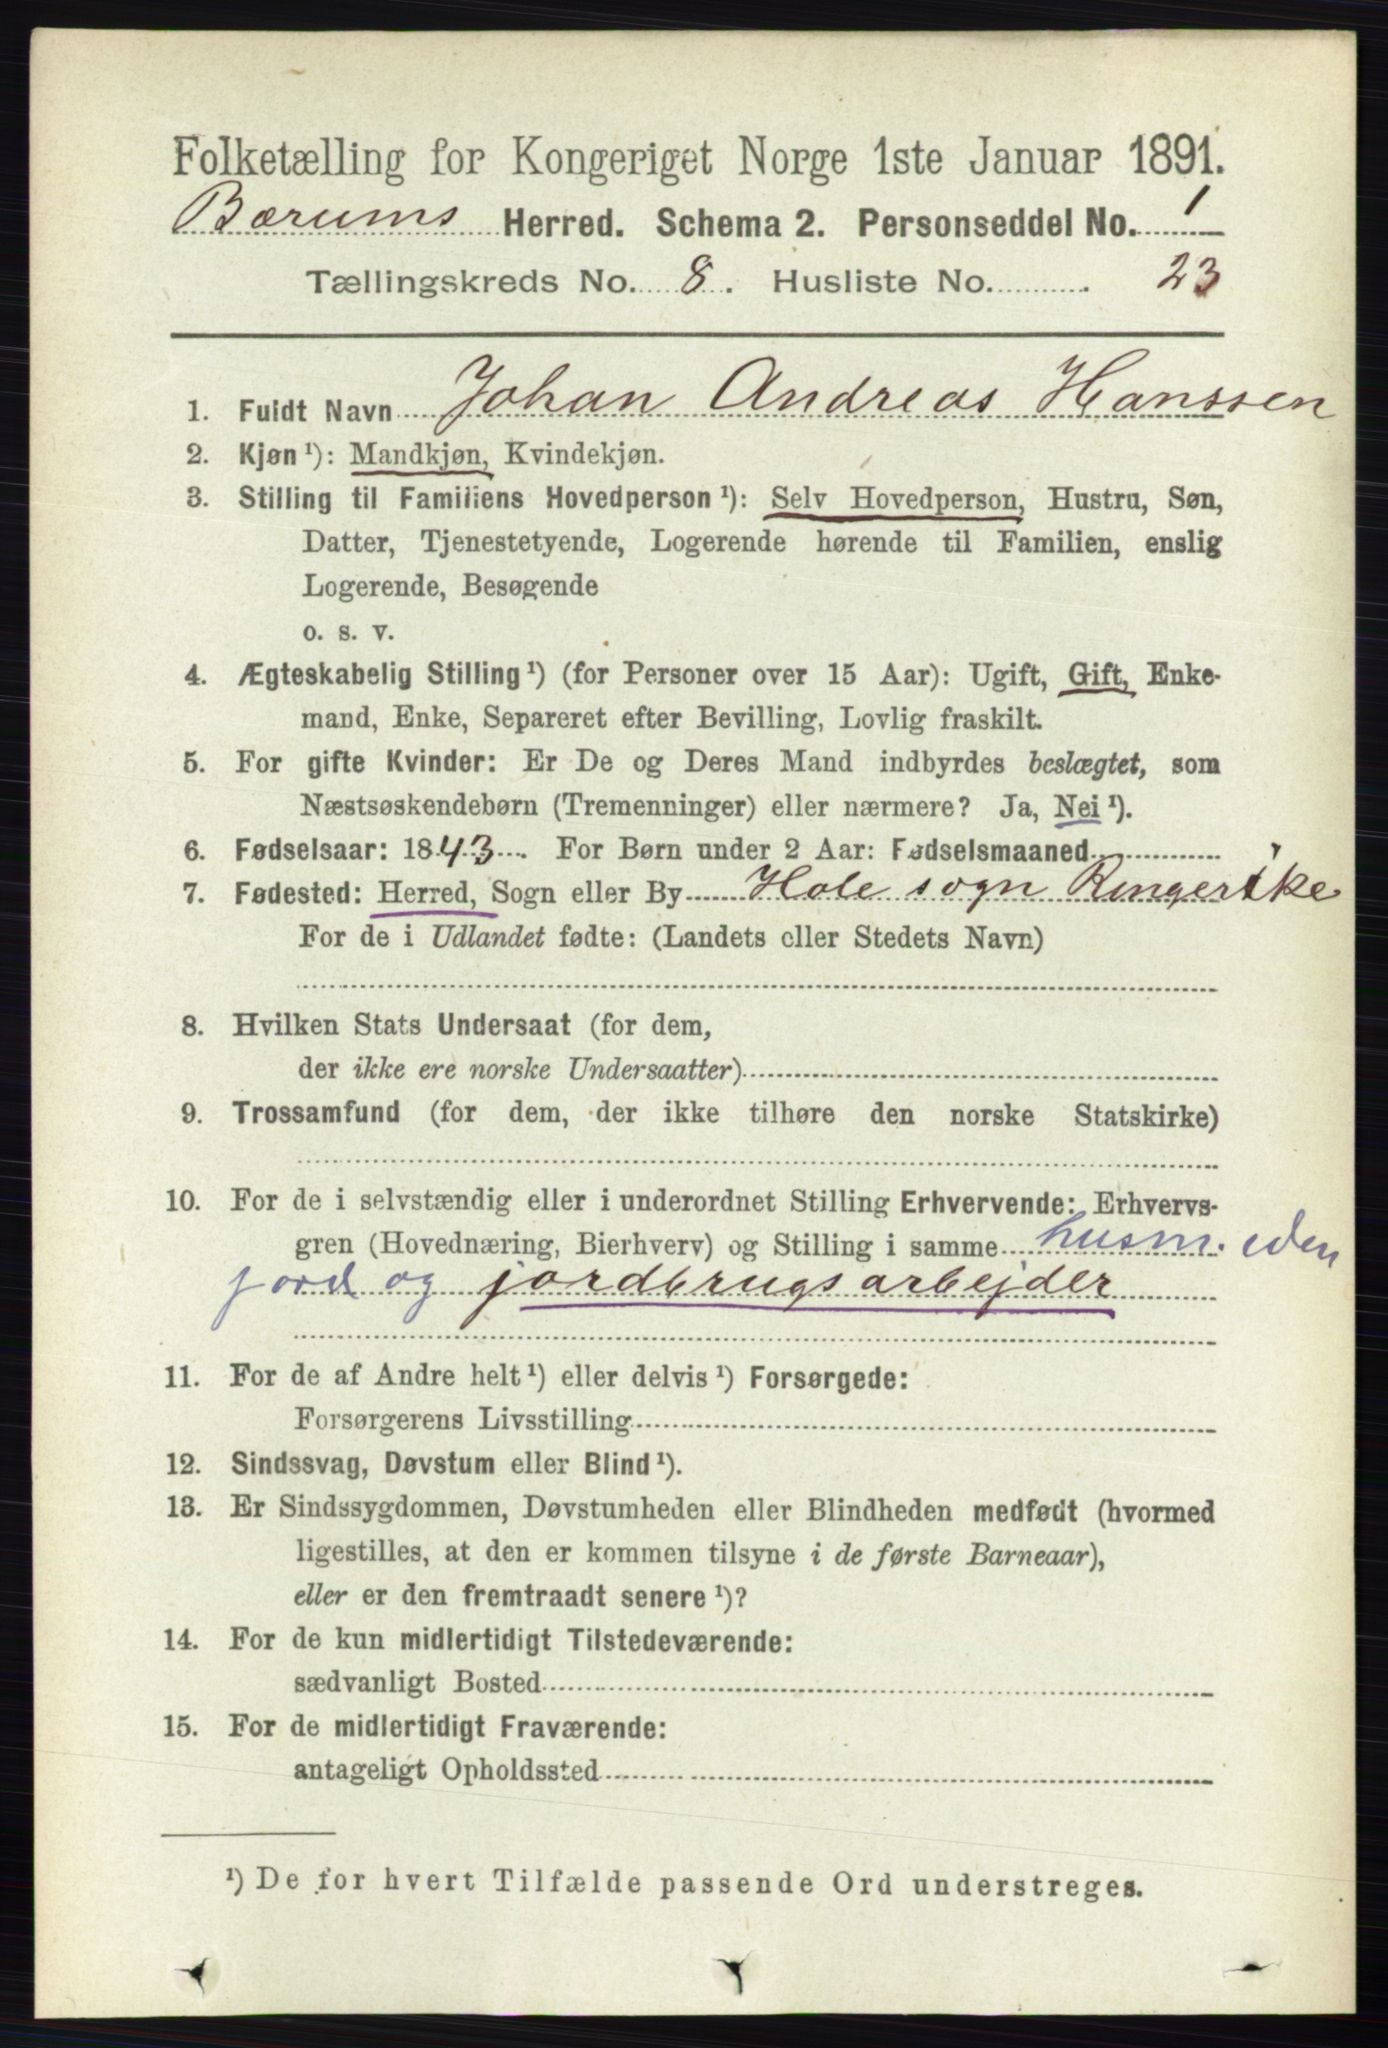 Folketælling for Kongeriget Norge 1ste Januar 1891.
Bærums Herred. Schema 2. Personseddel No. 1
Tællingskreds No. 8. Husliste No. 23
1. Fuldt Navn Johan Andreas Hanssen
2. Kjøn ¹): Mandkjøn, Kvindekjøn.
3. Stilling til Familiens Hovedperson ¹): Selv Hovedperson, Hustru, Søn,
Datter, Tjenestetyende, Logerende hørende til Familien, enslig
Logerende, Besøgende
o. s. v.
4. Ægteskabelig Stilling ¹) (for Personer over 15 Aar): Ugift, Gift, Enke-
mand, Enke, Separeret efter Bevilling, Lovlig fraskilt.
5. For gifte Kvinder: Er De og Deres Mand indbyrdes beslægtet, som
Næstsøskendebørn (Tremenninger) eller nærmere? Ja, Nei ¹).
6. Fødselsaar: 1843. For Børn under 2 Aar: Fødselsmaaned
7. Fødested: Herred, Sogn eller By Hole sogn Ringerike
For de i Udlandet fødte: (Landets eller Stedets Navn)
8. Hvilken Stats Undersaat (for dem,
der ikke ere norske Undersaatter)
9. Trossamfund (for dem, der ikke tilhøre den norske Statskirke)
10. For de i selvstændig eller i underordnet Stilling Erhvervende: Erhvervs-
gren (Hovednæring, Bierhverv) og Stilling i samme husm. uden
jord og jordbrugsarbejder
11. For de af Andre helt ¹) eller delvis ¹) Forsørgede:
Forsørgerens Livsstilling
12. Sindssvag, Døvstum eller Blind ¹).
13. Er Sindssygdommen, Døvstumheden eller Blindheden medfødt (hvormed
ligestilles, at den er kommen tilsyne i de første Barneaar),
eller er den fremtraadt senere ¹)?
14. For de kun midlertidigt Tilstedeværende:
sædvanligt Bosted
15. For de midlertidigt Fraværende:
antageligt Opholdssted
¹) De for hvert Tilfælde passende Ord understreges.